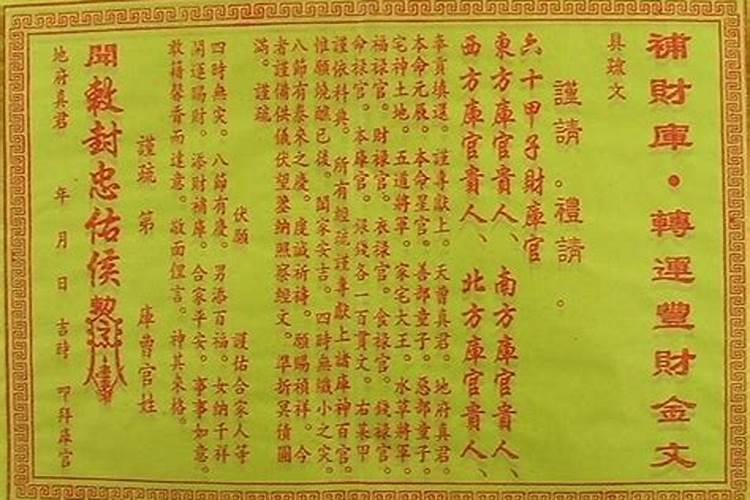 補財庫・轉運豐財金文
具疏文
謹請。禮請。
六十甲子財庫官
東方庫官貴人、南方庫官貴人、
西方庫官貴人、北方庫官貴人、
奉貢填還。謹專獻上。天曹真君。地府真君。
本命元辰。本命星官。善部童子。惡部童子。
宅神土地。五道將軍。家宅大王。水草將軍。
福祿官。財祿官。衣祿官。食祿官。錢祿官。
命祿官。本庫官。銀錢各一百貫文。右某甲
謹依科典。所有經疏謹專獻上諸庫神百官。
惟願燒醮已後。闔家安吉。四時無纖小之灾。
八節有泰來之慶。虔誠祈禱。願賜禎祥。今
者謹備供儀伏望鑒納照察經文。準折冥債圓
滿。謹疏。
伏願
謹佑合家人等
四時無灾。八節有慶。男添百福。女納千祥
開運賜財。添財補庫。合家平安。事事如意。
敢藉馨香而達意。敬面俚言。神其來格。
謹疏 第 庫曹官姓
聞敕封忠佑侯
地府真君 年 月 日 吉時 叩拜庫官